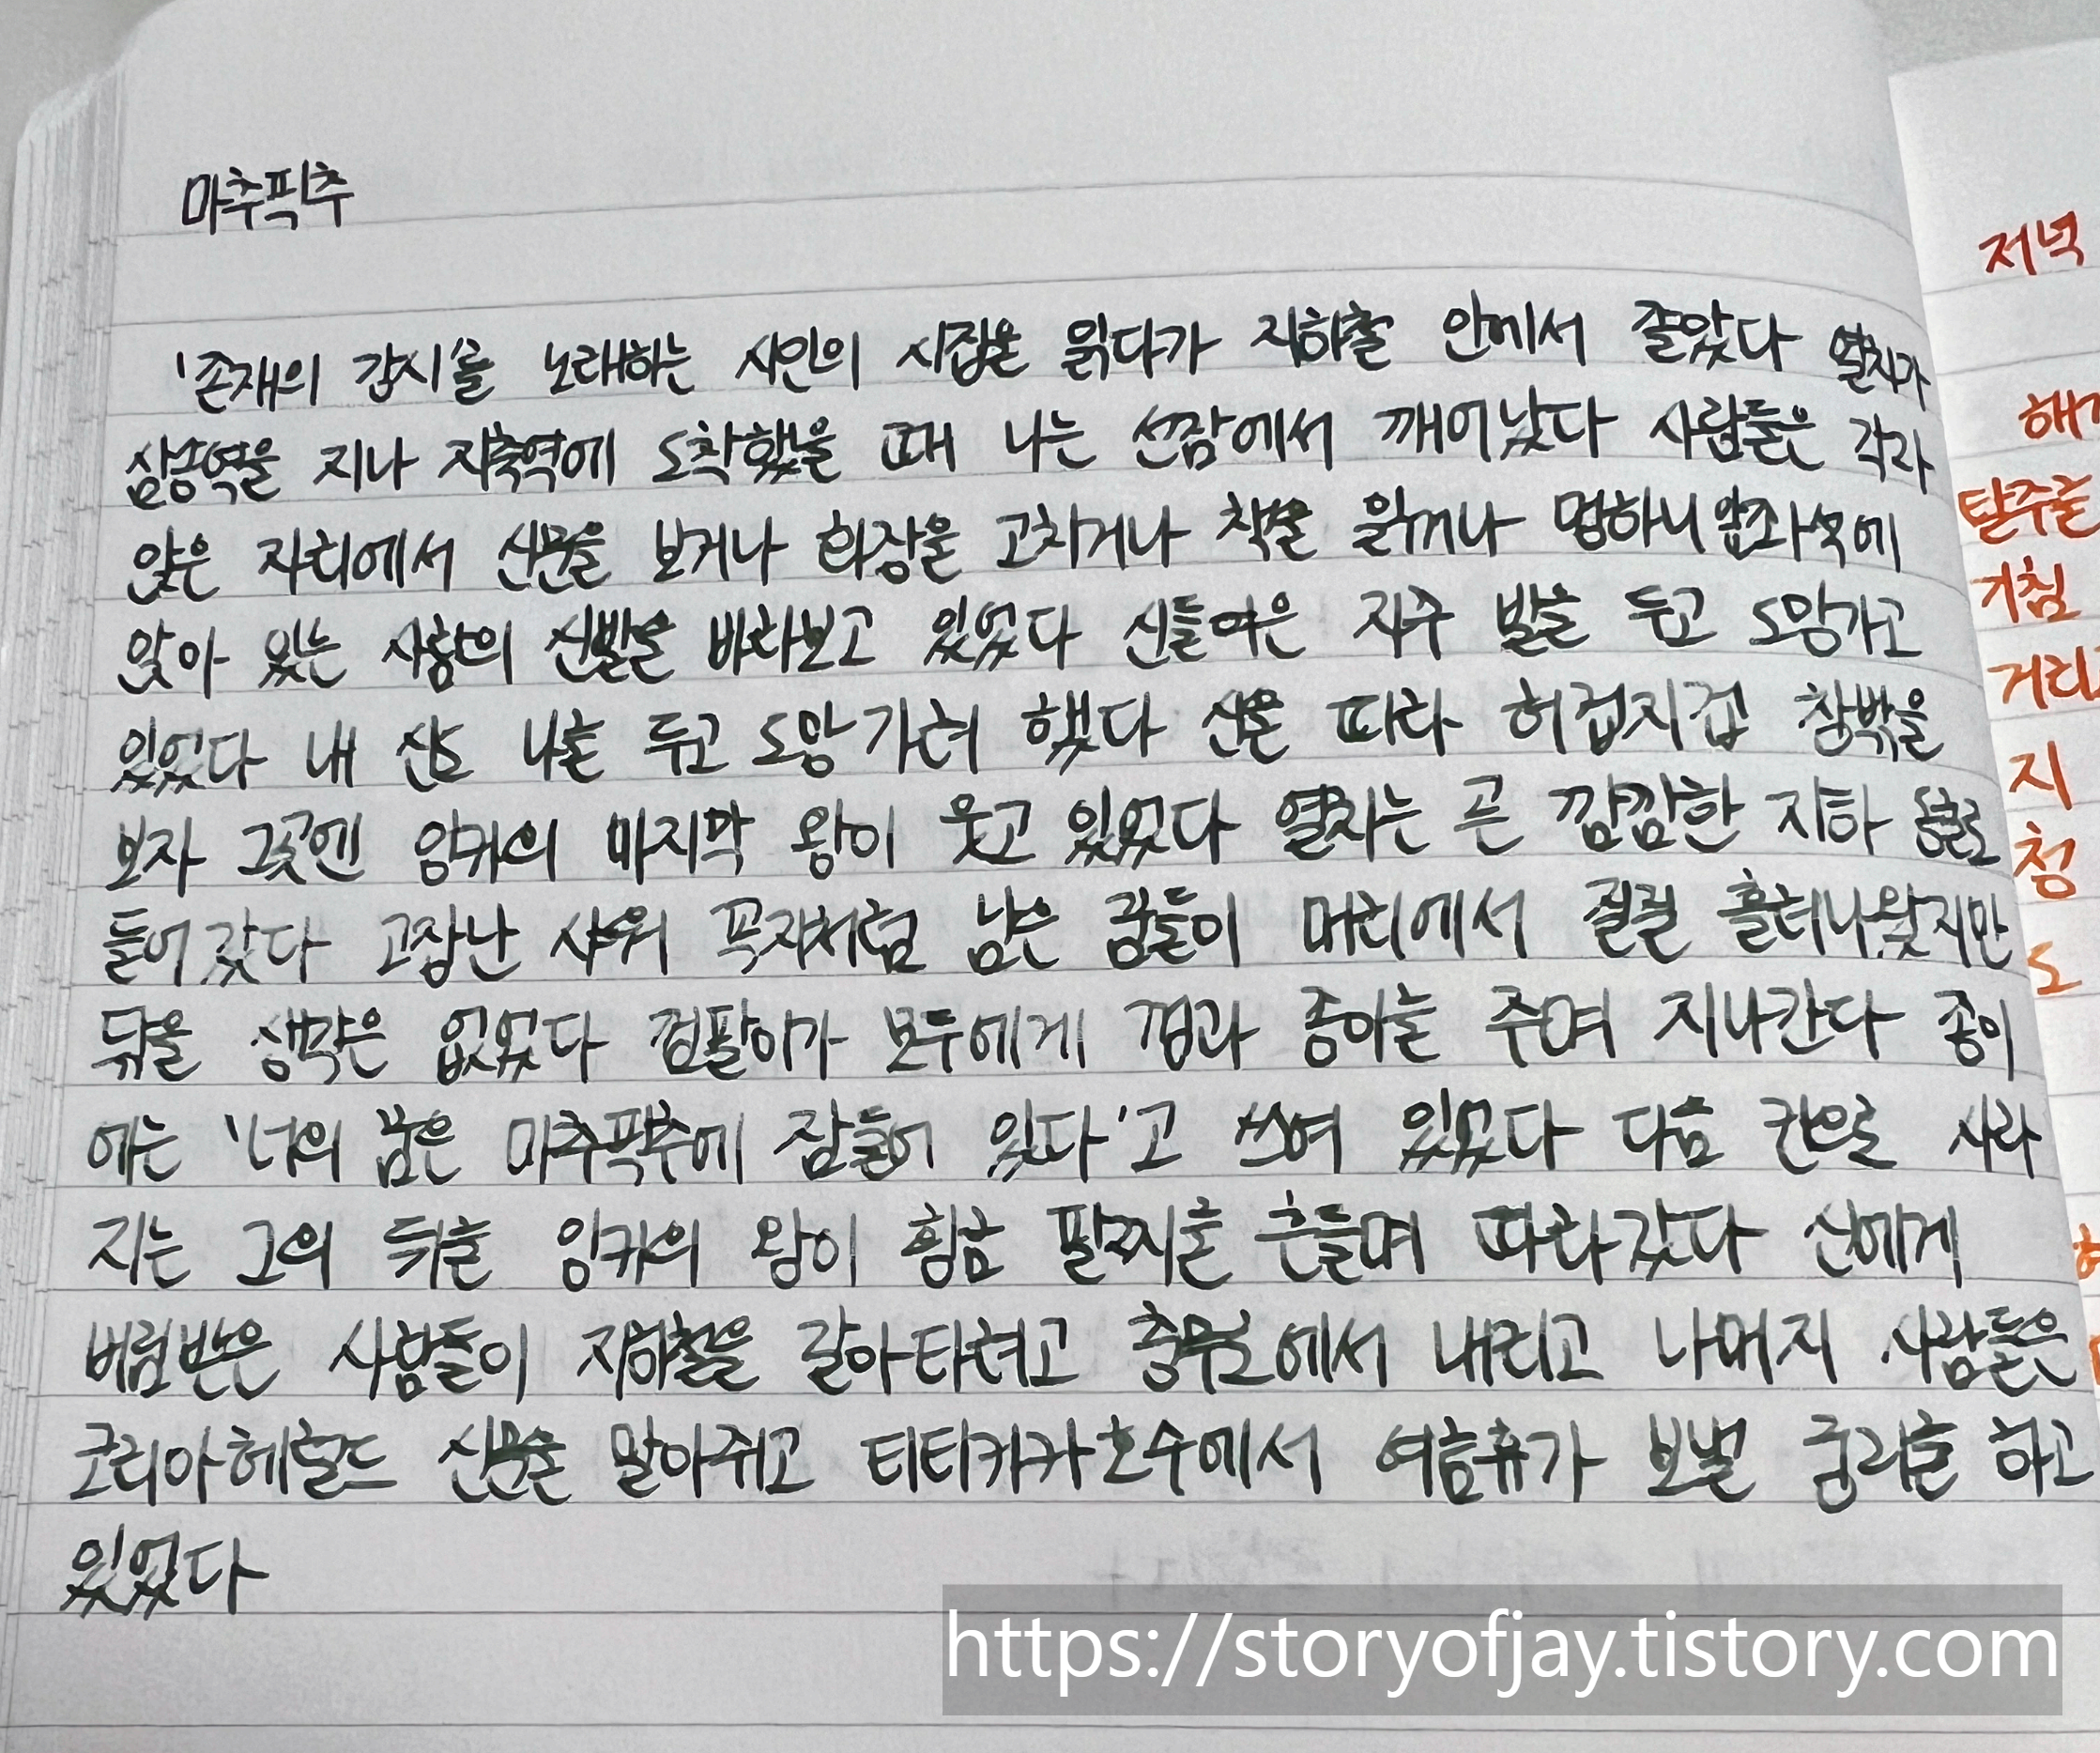 마추픽추
'존재의 감시'를 노래하는 시인의 시집을 읽다가 지하철 안에서 졸았다 열차가
삼송역을 지나 지축역에 도착했을 때 나는 선잠에서 깨어났다 사람들은 각각
앉은 자리에서 신문을 보거나 화장을 고치거나 책을 읽거나 멍하니 앞좌석에
앉아 있는 사람의 신발을 바라보고 있었다 신들은 자주 발을 두고 도망가고
있었다 내 신도 나를 두고 도망가려 했다 신을 따라 허겁지겁 창밖을
보자 그곳엔 잉카의 마지막 왕이 웃고 있었다 열차는 곧 깜깜한 지하 동굴로
들어갔다 고장난 샤워 꼭지처럼 남은 꿈들이 머리에서 질질 흘러나왔지만
닦을 생각은 없었다 껌팔이가 모두에게 껌과 종이를 주며 지나간다 종이
에는 '너의 꿈은 마추픽추에 잠들어 있다'고 쓰여 있었다 다음 칸으로 사라
지는 그의 뒤를 잉카의 왕이 황금 팔찌를 흔들며 따라갔다 신에게
버림받은 사람들이 지하철을 갈아타려고 충무로에서 내리고 나머지 사람들은
코리아헤럴드 신문을 말아쥐고 티티카카호수에서 여름휴가 보낼 궁리를 하고
있었다
저녁
탈주를
거침
지
청
도
https://storyofjay.tistory.com